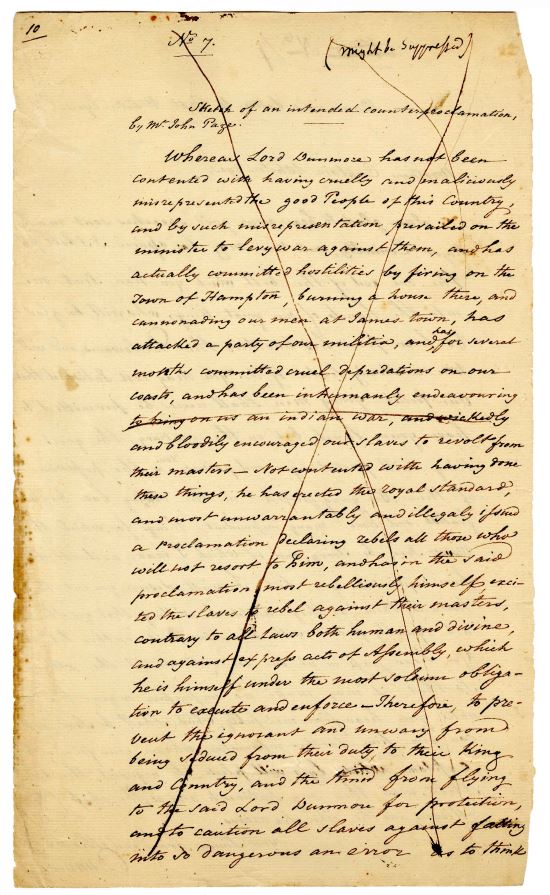 10
No 7.
(might be suppressed)
Sketch of an intended counterproclamation,
by Mr. John Page.
Whereas Lord Dunmore has not been
contented with having cruelly and maliciously
misrepresented the good People of this Country,
and by such misrepresentation prevailed on the
minister to levy war against them, and has
actually committed hostilities by firing on the
Town of Hampton, burning a house there, and
cannonading our men at James town, has
attacked a party of our militia, and has for several
months committed cruel depredations on our
coasts, and has been inhumanly endeavouring
to bring on us an indian war, and wickedly
and bloodily encouraged our slaves to revolt from
their masters — Not contented with having done
these things, he has erected the royal standard,
and most unwarrantably and illegaly issued
a proclamation declaring rebels all those who
will not resort to him, and has in the said
proclamation most rebelliously himself exci-
ted the slaves to rebel against their masters,
contrary to all Laws both human and divine,
and against express acts of Assembly, which
he is himself under the most solemn obliga-
tion to execute and enforce — Therefore, to pre-
vent the ignorant and unwary from
being seduced from their duty to their King
and Country, and the timid from flying
to the said Lord Dunmore for protection,
and to caution all slaves against falling
into so dangerous an error as to think